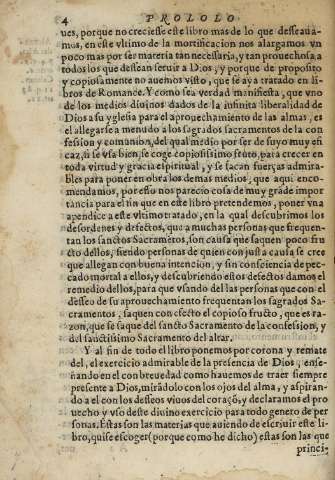 4 PROLOLO
ues, porque no creciesse este libro mas de lo que desseaua-
mos, en este vltimo de la mortificacion nos alargamos vn
poco mas por ser materia tan necessaria, y tan prouechosa a
todos los que dessean seruir a Dios, y porque de proposito
y copiosamente no auemos visto, que se aya tratado en li-
bros de Romance. Y como sea verdad manifiesta, que vno
de los medios diuinos dados de la infinita liberalidad de
Dios a su yglesia para el aprouechamiento de las almas, es
el allegarse a menudo a los sagrados sacramentos de la con-
fession y comunion, del qual medio por ser de suyo muy efi
caz, si se vsa bien, se coge copiosissimo fruto, para crecer en
toda virtud y gracia espiritual, y se sacan fuerças admira-
bles para poner en obra los demas medios, que aqui enco-
mendamos, por esso nos parecio cosa de muy grāde impor
tancia para el fin que en este libro pretendemos, poner vna
apendice a este vltimo tratado, en la qual descubrimos los
desordenes y defectos, que a muchas personas que frequen-
tan los sanctos Sacramētos, son causa que saquen poco fru
cto dellos, siendo personas de quien con justa causa se cree
que allegan con buena intencion, y sin consciencia de pec-
cado mortal a ellos, y descubriendo estos defectos damos el
remedio dellos, para que vsando del las personas que con el
desseo de su aprouechamiento frequentan los sagrados Sa-
cramentos, saquen con efecto el copioso fructo, que es ra-
zon, que se saque del sancto Sacramento de la confession, y
del sanctissimo Sacramento del altar.
Y al fin de todo el libro ponemos por corona y remate
del, el exercicio admirable de la presencia de Dios, ense-
ñando en el con breuedad como hauemos de traer siempre
presente a Dios, mirādolo con los ojos del alma, y aspiran-
do a el con los desseos viuos del coraçō, y declaramos el pro
uecho y vso deste diuino exercicio para todo genero de per
sonas. Estas son las materias que auiendo de escriuir este li-
bro, quise escoger (porque como he dicho) estas son las que
princi-